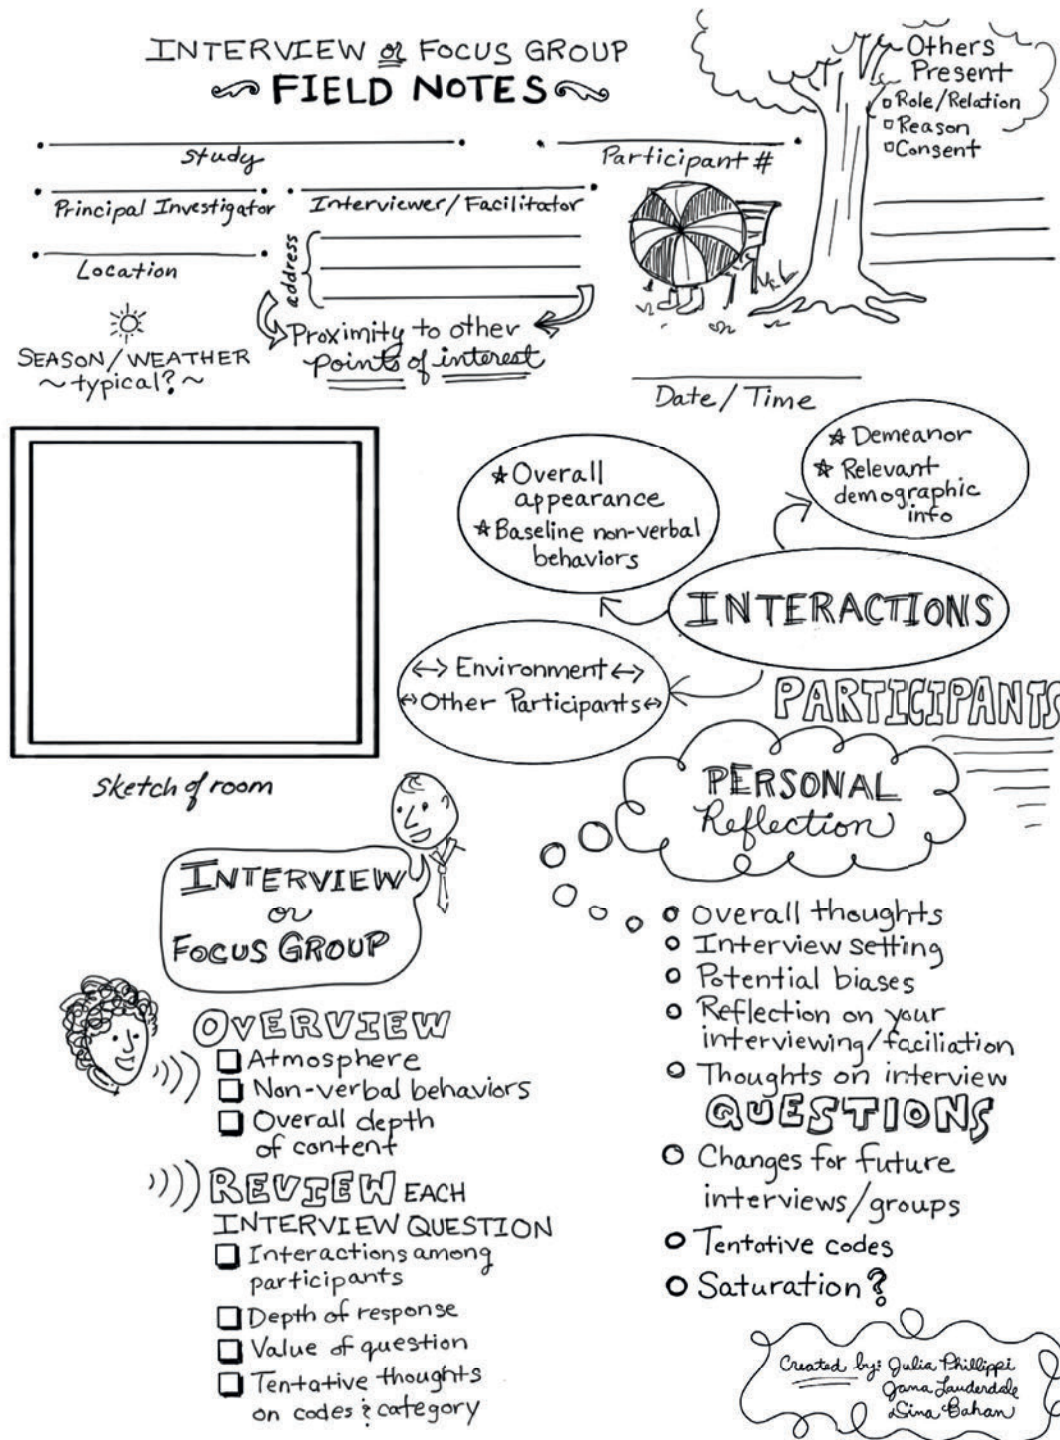 INTERVIEW or FOCUS GROUP
FIELD NOTES
Others
Present
Role/Relation
Reason
Consent
Study
Participant #
Principal Investigator
Interviewer/Facilitator
Location
address
SEASON/WEATHER
~typical?~
Proximity to other
points of interest
Date/Time
Overall
appearance
Baseline non-verbal
behaviors
Demeanor
Relevant
demographic
info
INTERACTIONS
Environment
Other Participants
PARTICIPANTS
sketch of room
PERSONAL
Reflection
INTERVIEW
or
FOCUS GROUP
OVERVIEW
Atmosphere
Non-verbal behaviors
Overall depth
of content
REVIEW EACH
INTERVIEW QUESTION
Interactions among
participants
Depth of response
Value of question
Tentative thoughts
on codes & category
Overall thoughts
Interview setting
Potential biases
Reflection on your
interviewing/faciliation
Thoughts on interview
QUESTIONS
Changes for future
interviews/groups
Tentative codes
Saturation?
Created by: Julia Phillippi
Jana Lauderdale
Sina Bahan